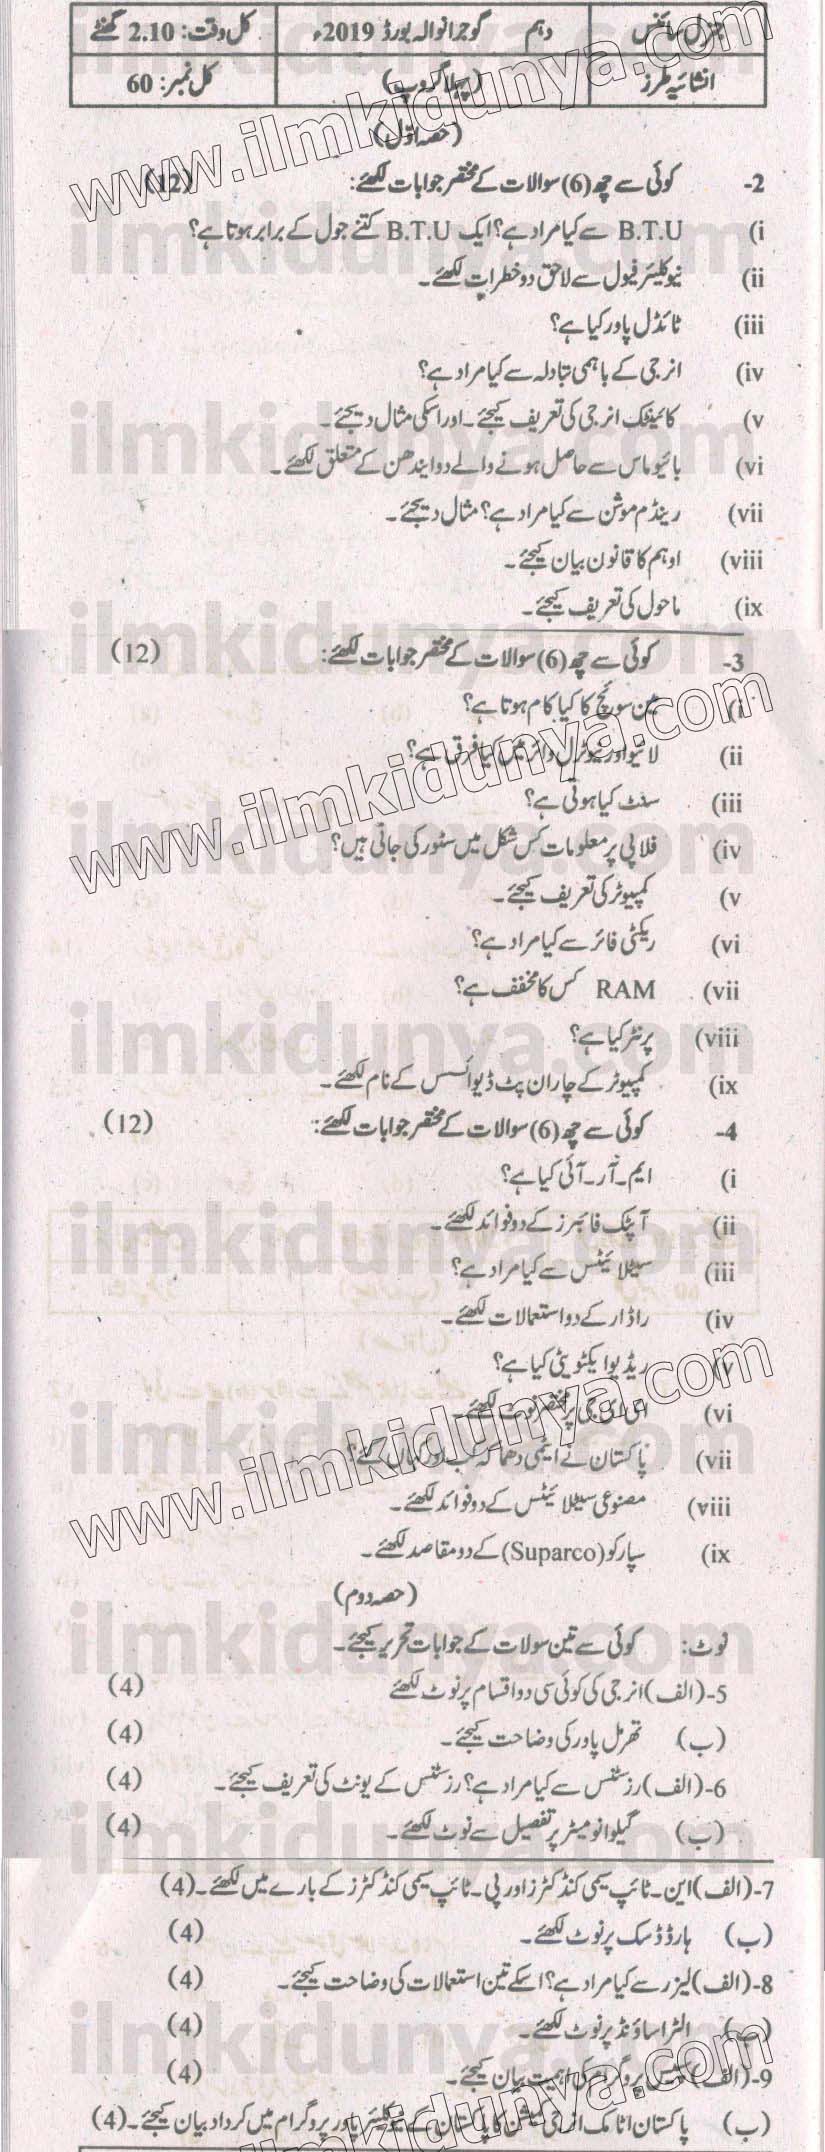 جنرل سائنس دہم گوجرانوالہ بورڈ 2019ء کل وقت: 2.10 گھنٹے
انشائیہ طرز (پہلا گروپ) کل نمبر: 60
(حصہ اوّل)
2- کوئی سے چھ (6) سوالات کے مختصر جوابات لکھئے: (12)
i) B.T.U سے کیا مراد ہے؟ ایک B.T.U کتنے جول کے برابر ہوتا ہے؟
ii) نیوکلیئر فیول سے لاحق دو خطرات لکھئے۔
iii) ٹائڈل پاور کیا ہے؟
iv) انرجی کے باہمی تبادلہ سے کیا مراد ہے؟
v) کائینیٹک انرجی کی تعریف کیجئے۔ اور اسکی مثال دیجئے۔
vi) بائیوماس سے حاصل ہونے والے دو ایندھن کے متعلق لکھئے۔
vii) رینڈم موشن سے کیا مراد ہے؟ مثال دیجئے۔
viii) اوہم کا قانون بیان کیجئے۔
ix) ماحول کی تعریف کیجئے۔
3- کوئی سے چھ (6) سوالات کے مختصر جوابات لکھئے: (12)
i) مین سوئچ کا کیا کام ہوتا ہے؟
ii) لائیو اور نیوٹرل وائر میں کیا فرق ہے؟
iii) سنٹ کیا ہوتی ہے؟
iv) فلاپی پر معلومات کس شکل میں سٹور کی جاتی ہیں؟
v) کمپیوٹر کی تعریف کیجئے۔
vi) ریکٹی فائر سے کیا مراد ہے؟
vii) RAM کس کا مخفف ہے؟
viii) پرنٹر کیا ہے؟
ix) کمپیوٹر کے چار ان پٹ ڈیوائسس کے نام لکھئے۔
4- کوئی سے چھ (6) سوالات کے مختصر جوابات لکھئے: (12)
i) ایم۔آر۔آئی کیا ہے؟
ii) آپٹک فائبرز کے دو فوائد لکھئے۔
iii) سیٹلائیٹس سے کیا مراد ہے؟
iv) راڈار کے دو استعمالات لکھئے۔
v) ریڈیو ایکٹویٹی کیا ہے؟
vi) ای ای جی پر مختصر نوٹ لکھئے۔
vii) پاکستان نے ایٹمی دھماکہ کب اور کہاں کئے؟
viii) مصنوعی سیٹلائیٹس کے دو فوائد لکھئے۔
ix) سپارکو (Suparco) کے دو مقاصد لکھئے۔
(حصہ دوم)
نوٹ: کوئی سے تین سولات کے جوابات تحریر کیجئے۔
5-(الف) انرجی کی کوئی سی دو اقسام پر نوٹ لکھئے (4)
(ب) تھرمل پاور کی وضاحت کیجئے۔ (4)
6-(الف) رزسٹنس سے کیا مراد ہے؟ رزسٹنس کے یونٹ کی تعریف کیجئے۔ (4)
(ب) گیلوانومیٹر پر تفصیل سے نوٹ لکھئے۔ (4)
7-(الف) این۔ٹائپ سیمی کنڈکٹرز اور پی۔ٹائپ سیمی کنڈکٹرز کے بارے میں لکھئے۔ (4)
(ب) ہارڈ ڈسک پر نوٹ لکھئے۔ (4)
8-(الف) لیزر سے کیا مراد ہے؟ اسکے تین استعمالات کی وضاحت کیجئے۔ (4)
(ب) الٹراساؤنڈ پر نوٹ لکھئے۔ (4)
9-(الف) سپیس پروگرام کی اہمیت بیان کیجئے۔ (4)
(ب) پاکستان اٹامک انرجی کمیشن کا پاکستان کے نیوکلیئر پاور پروگرام میں کردار بیان کیجئے۔ (4)
www.ilmkidunya.com
ilmkidunya.com